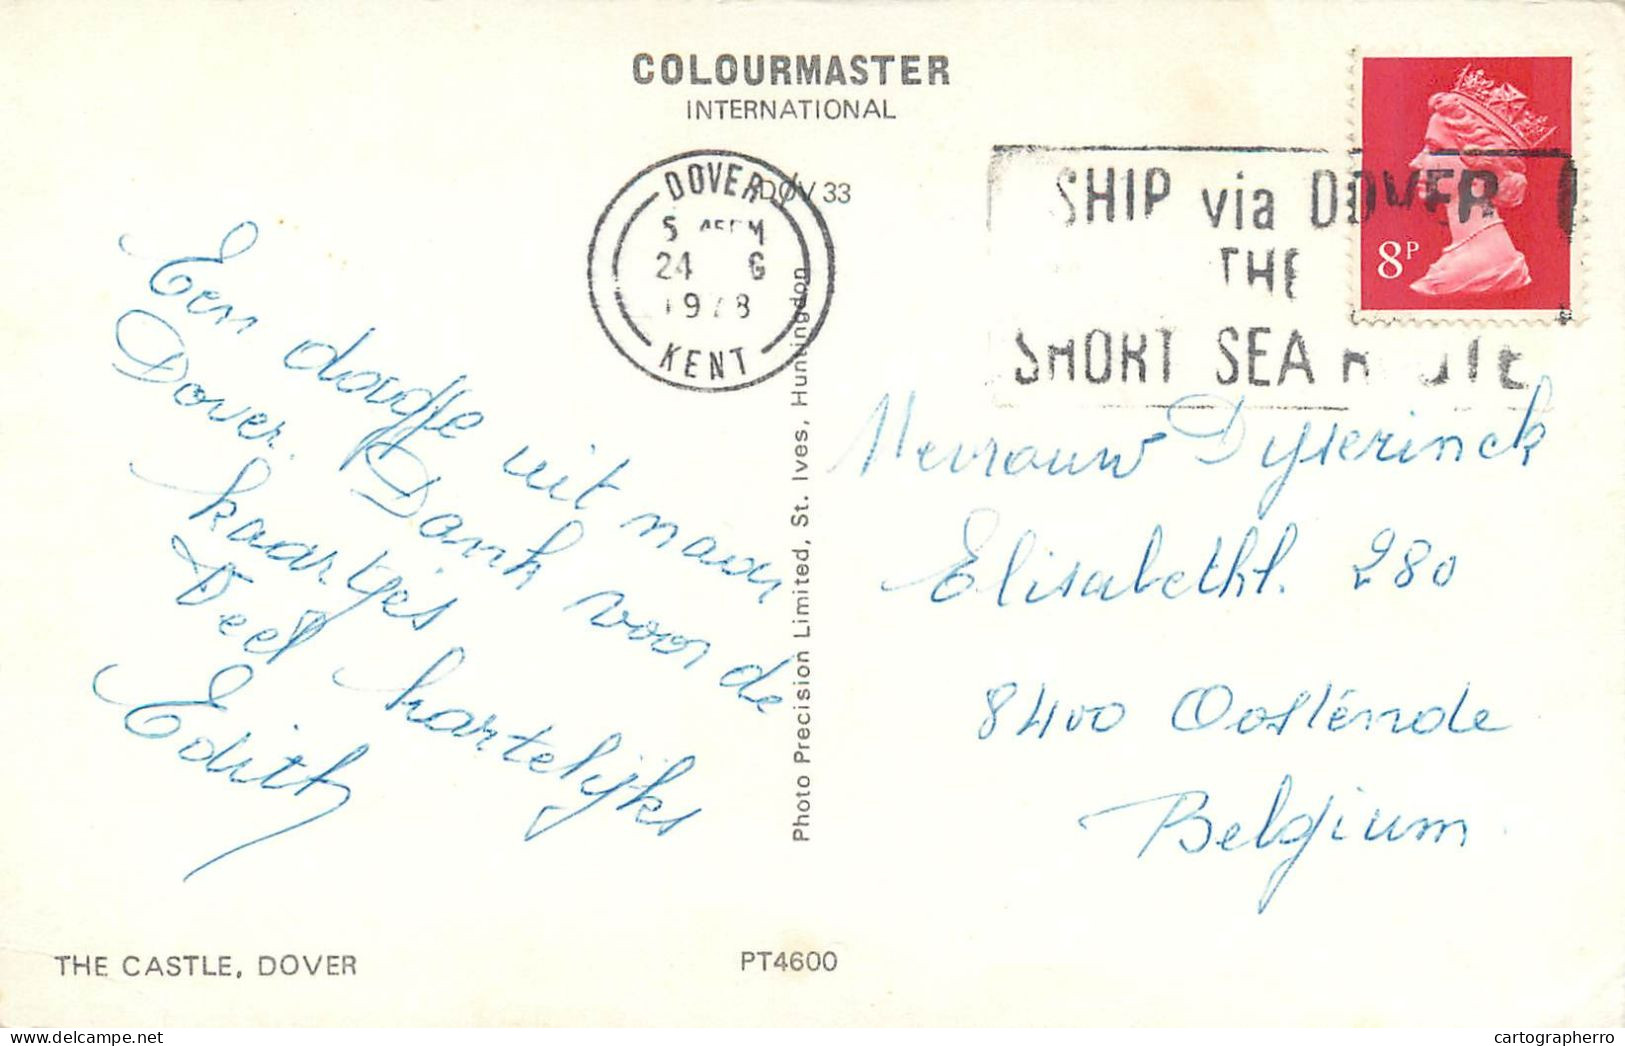 COLOURMASTER
INTERNATIONAL
DOV 33
DOVER
24
1978
KENT
SHIP via DOVER
THE
SHORT SEA
8P
Een dagje uit naar
Dover. Dank voor de
kaartjes
Veel hartelijks
Edith
Photo Precision Limited, St. Ives, Huntingdon
Mevrouw
Elisabethl. 280
8400 Oostende
Belgium.
THE CASTLE, DOVER
PT4600
cartographerro